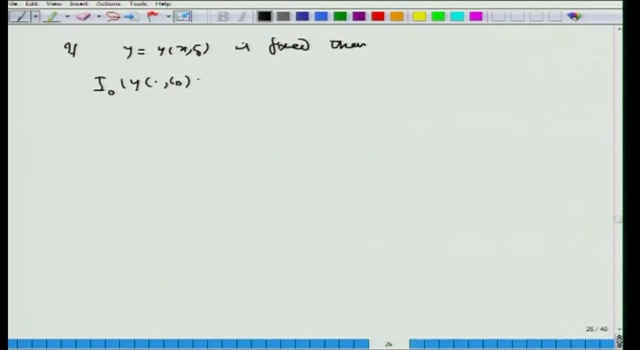 File Edit View Insert Actions Tools Help
If y = y(x,ξ) is fixed then
I₀(y(·,ξ₀)
26 / 40
26